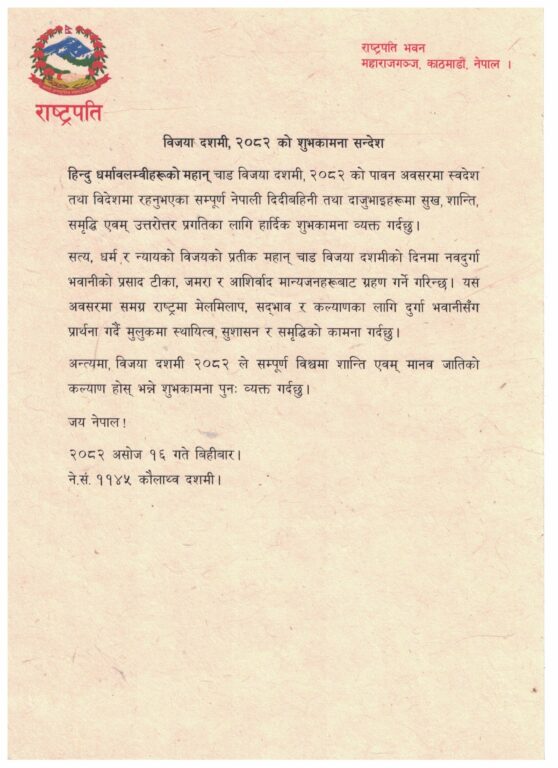 राष्ट्रपति
राष्ट्रपति भवन
महाराजगञ्ज, काठमाडौं, नेपाल ।
विजया दशमी, २०८२ को शुभकामना सन्देश
हिन्दु धर्मावलम्बीहरूको महान् चाड विजया दशमी, २०८२ को पावन अवसरमा स्वदेश
तथा विदेशमा रहनुभएका सम्पूर्ण नेपाली दिदीबहिनी तथा दाजुभाइहरूमा सुख, शान्ति,
समृद्धि एवम् उत्तरोत्तर प्रगतिका लागि हार्दिक शुभकामना व्यक्त गर्दछु ।
सत्य, धर्म र न्यायको विजयको प्रतीक महान् चाड विजया दशमीको दिनमा नवदुर्गा
भवानीको प्रसाद टीका, जमरा र आशिर्वाद मान्यजनहरूबाट ग्रहण गर्ने गरिन्छ । यस
अवसरमा समग्र राष्ट्रमा मेलमिलाप, सद्‌भाव र कल्याणका लागि दुर्गा भवानीसँग
प्रार्थना गर्दै मुलुकमा स्थायित्व, सुशासन र समृद्धिको कामना गर्दछु ।
अन्त्यमा, विजया दशमी २०८२ ले सम्पूर्ण विश्वमा शान्ति एवम् मानव जातिको
कल्याण होस् भन्ने शुभकामना पुनः व्यक्त गर्दछु ।
जय नेपाल !
२०८२ असोज १६ गते बिहीबार ।
ने.सं. ११४५ कौलाथ्व दशमी ।